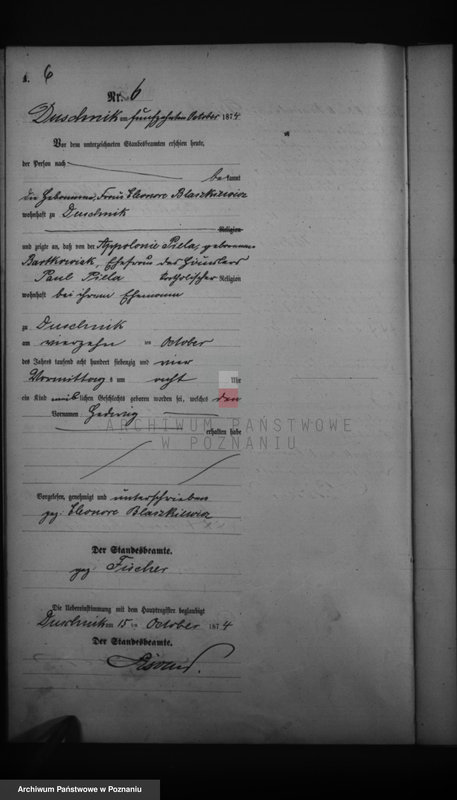 A. 6
Nr. 6
Duschnik am fünfzehnten October 1874
Vor dem unterzeichneten Standesbeamten erschien heute,
der Person nach
bekannt
die Hebamme, Frau Eleonore Blaszkiewicz
wohnhaft zu Duschnik
Religion
und zeigte an, daß von der Appolonie Piela, geborenen
Bartkowiak, Ehefrau des Häuslers
Paul Piela katholischer Religion
wohnhaft bei ihrem Ehemann
zu Duschnik
am vierzehn ten October
des Jahres tausend acht hundert siebenzig und vier
Vormittags um acht Uhr
ein Kind weiblichen Geschlechts geboren worden sei, welches den
Vornamen: Hedwig
erhalten habe
ARCHIWUM PAŃSTWOWE
W POZNANIU
Vorgelesen, genehmigt und unterschrieben
gez: Eleonore Blaszkiewicz
Der Standesbeamte.
gez: Fischer
Die Uebereinstimmung mit dem Hauptregister beglaubigt
Duschnik am 15 ten October 1874
Der Standesbeamte.
Archiwum Państwowe w Poznaniu